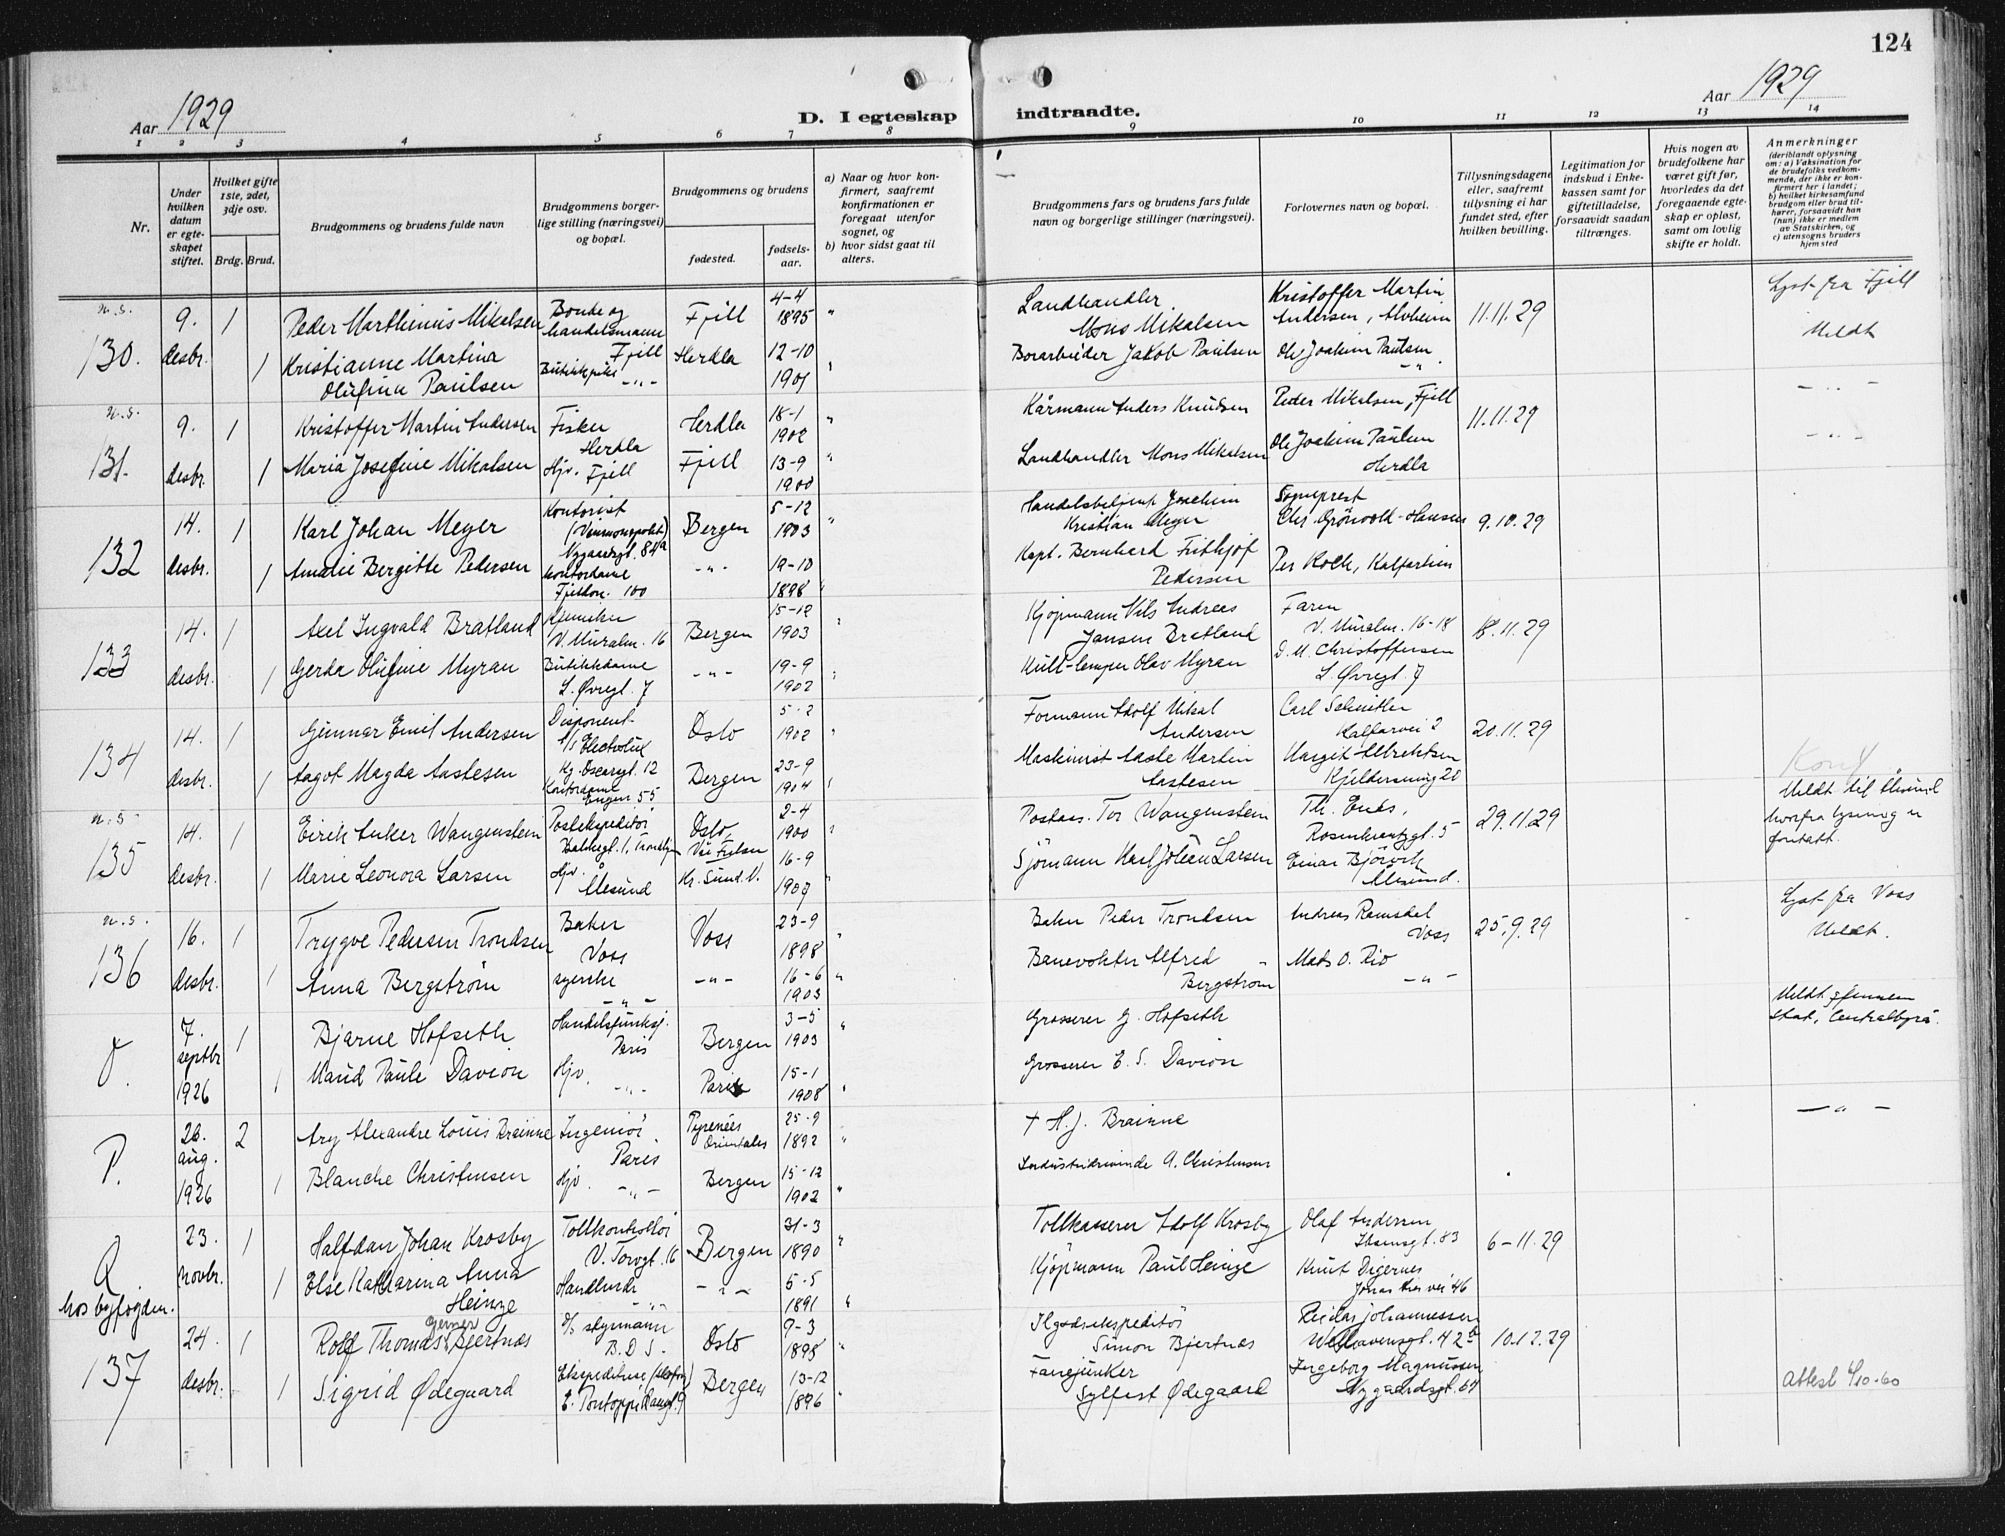 124
Aar 1929
D. I egteskap indtraadte.
Aar 1929
1 2 3 4 5 6 7 8 9 10 11 12 13 14
Nr.
Under hvilken datum er egteskapet stiftet.
Hvilket gifte 1ste, 2det, 3dje osv.
Brdg. Brud.
Brudgommens og brudens fulde navn
Brudgommens borgerlige stilling (næringsvei) og bopæl.
Brudgommens og brudens
fødested.
fødselsaar.
a) Naar og hvor konfirmert, saafremt konfirmationen er foregaat utenfor sognet, og
b) hvor sidst gaat til alters.
Brudgommens fars og brudens fars fulde navn og borgerlige stillinger (næringsvei).
Forlovernes navn og bopæl.
Tillysningsdagene eller, saafremt tillysning ei har fundet sted, efter hvilken bevilling.
Legitimation for indskud i Enkekassen samt for giftetilladelse, forsaavidt saadan tiltrænges.
Hvis nogen av brudefolkene har været gift før, hvorledes da det foregaaende egteskap er opløst, samt om lovlig skifte er holdt.
Anmerkninger
(deriblandt oplysning om: a) Vaksination for de brudefolks vedkommende, der ikke er konfirmert her i landet; b) hvilket kirkesamfund brudgom eller brud tilhører, forsaavidt han (hun) ikke er medlem av Statskirken, og c) utensogns bruders hjemsted
n.s.
130. 9. desbr. 1 Peder Marthinius Mikalsen Bonde og handelsmann Fjell Fjell 4-4 1895 " Landhandler Mons Mikalsen Kristoffer Martin Andersen, Alvheim 11.11.29 Lyst fra Fjell
1 Kristianne Martina Olufina Paulsen Butikkpike -"- Herdla 12-10 1901 " Borarbeider Jakob Paulsen Ole Joakim Paulsen -"- Meldt
n.s.
131. 9. desbr. 1 Kristoffer Martin Andersen Fisker Herdla Herdla 18-1 1902 " Kårmann Anders Knudsen Peder Mikalsen, Fjell 11.11.29 -"-
1 Maria Josefine Mikalsen Hjv. Fjell Fjell 13-9 1900 " Landhandler Mons Mikalsen Ole Joakim Paulsen Herdla -"-
132 14. desbr. 1 Karl Johan Meyer Kontorist (Vinmonopolet) Nygaardsgt. 84a Bergen 5-12 1903 " Handelsbetjent Joachim Kristian Meyer Sogneprest Chr. Grönvold-Hansen 9.10.29
1 Amalie Bergitte Pedersen Kontordame 100 -"- 19-10 1898 " Kapt. Bernhard Frithjof Pedersen Per Kolle, Kalfarlien
133 14. desbr. 1 Axel Ingvald Bratland V. Muralm. 16 Bergen 15-12 1903 " Kjøpmann Nils Andreas Jansen Bratland Faren V. Muralm. 16-18 18.11.29
1 Gerda Olufine Myran Butikkdame L. Øvregt. 7 -"- 19-9 1902 " Olav Myran D. M. Christoffersen L. Øvregt. 7
134 14. desbr. 1 Gunnar Emil Andersen Disponent A/S Electrolux Kg. Oscarsgt. 12 Oslo 5-2 1902 " Formann Adolf Mikal Andersen Carl Schiøtler Kalfarvei 2 20.11.29
1 Aagot Magda Aastesen Kontordame Engen 55 Bergen 23-9 1904 " Maskinist Aaste Martin Aastesen Margit Albrektsen Kjeldersmug 20
n.s.
135 14. desbr. 1 Eirik Anker Wangenstein Postekspeditør Bakkegt. 1, Oslo, 2-4 1900 " Postass. Tor Wangenstein Th. Enes, Rosenkrantzgt. 5 29.11.29 Meldt til Ålesund hvorfra lysning er foretatt.
1 Marie Leonora Larsen Hjv. Ålesund Kr. Sund. N. 16-9 1907 " Sjömann Karl Johan Larsen Einar Bjørvik Ålesund.
n.s.
136 16. desbr. 1 Trygve Pedersen Trondsen Baker Voss Voss 23-9 1898 " Baker Peder Trondsen Andreas Ramsdal Voss 25.9.29 Lyst fra Voss
1 Anna Bergström syerske -"- -"- 16-6 1903 " Banevokter Alfred Bergström Mads O. Rio -"- Meldt.
O. 7. septbr 1926 1 Bjarne Hofseth Handelsfunksj. Paris Bergen 3-5 1903 " Grosserer J. Hofseth Meldt gjennem Stat. Centralbyrå.
1 Maud Paule Davion Hjv. -"- Paris 15-1 1908 " Grosserer E. S. Davion
P. 26. aug. 1926 2 Ary Alexandre Louis Brainne Ingeniør Paris Pyrenées Orientales 25-9 1892 " † H. J. Brainne -"-
1 Blanche Christensen Hjv. -"- Bergen 15-12 1902 " A. Christensen
Q 23. novbr. 1 Halfdan Johan Krosby Tollkontrollør V. Torvgt. 16 Bergen 31-3 1890 " Tollkasserer Adolf Krosby Olaf Andersen Ibsensgt. 83 6-11.29
hos byfogden. 1 Else Katharina Anna Heinze -"- -"- 5-5 1891 " Kjöpmann Paul Heinze Knut Digernes Jonas Lies vei 46
137 24. desbr. 1 Rolf Thomas Gerner Bjertnæs styrmann B.D.S. Oslo 9-3 1895 " Ilgodsekspeditör Simon Bjertnæs Reidar Johannessen Welhavensgt. 42b 10.12.29
1 Sigrid Ødegaard E. Pontoppidansgt. 9 Bergen 13-12 1896 " Fanejunker Sylfest Ødegaard Ingeborg Magnussen Nygaardsgt. 64 attest 4/10-60